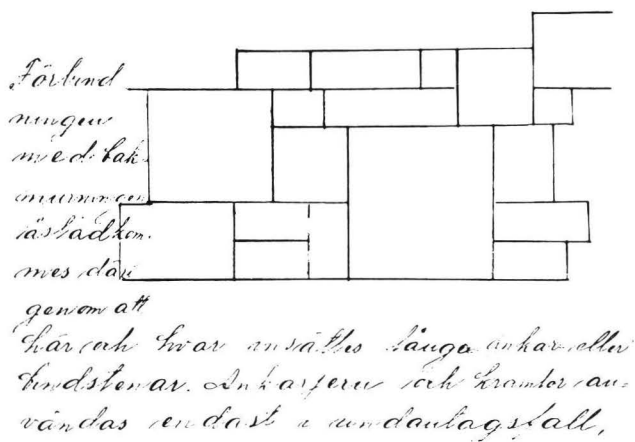 Förbind
ningen
med bak
murningen
åstadkom-
mes däri
genom att
här och hvar insättes långa ankar eller
bindstenar. Ankarjern och kramlor an-
vändas endast i undantagsfall,